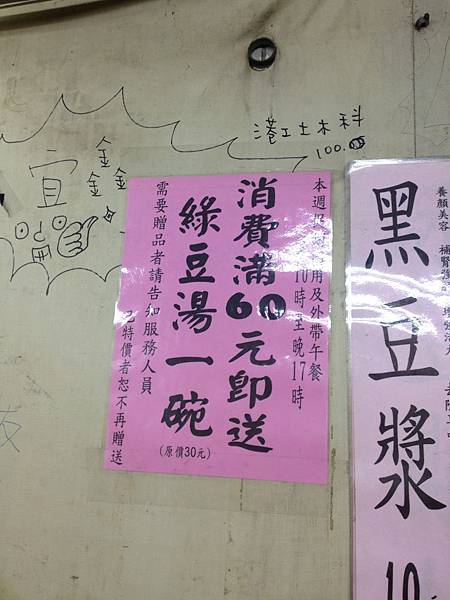 港工土木科
100.05
宜
鑫
鑫
本週
用及外帶午餐
10時至晚17時
消費滿60元即送
綠豆湯一碗
(原價30元)
需要贈品者請告知服務人員
已特價者恕不再贈送
黑豆漿
10
養顏美容 補腎強